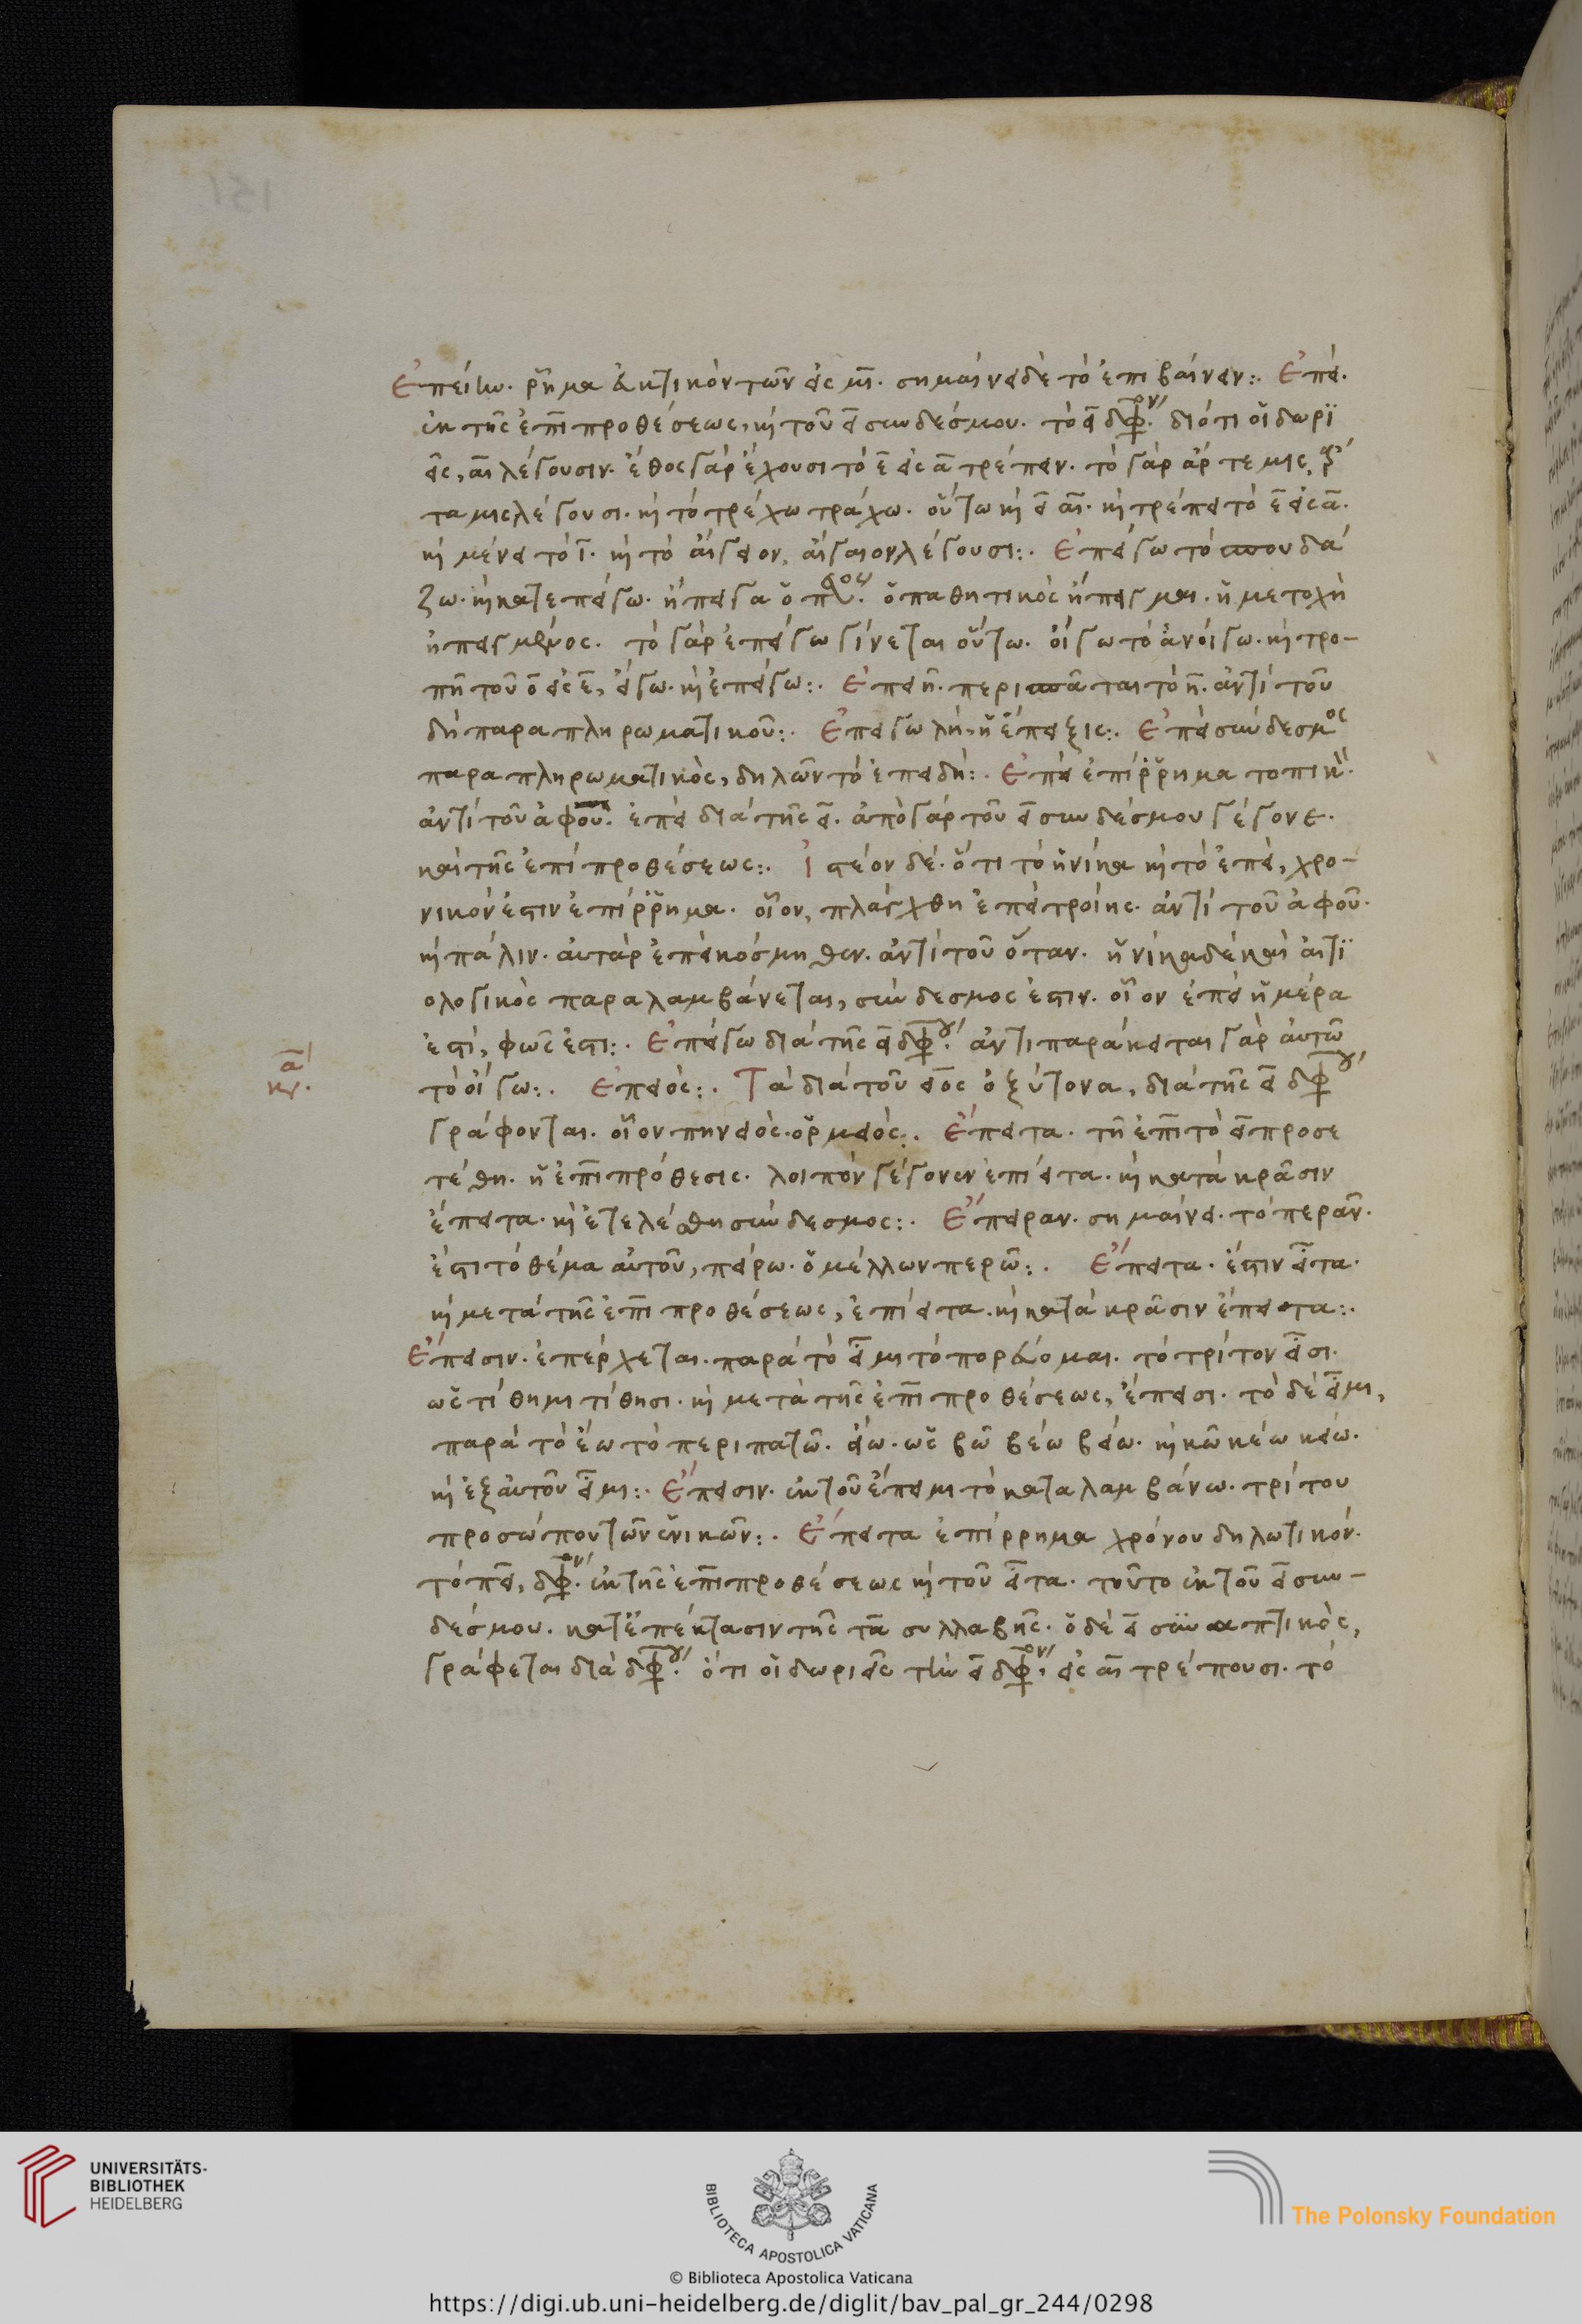 Ἐπείην. ῥῆμα εὐκτικὸν τῶν εἰς μι. σημαίνει δὲ τὸ ἐπιβαίνειν:. Ἐπεί.
ἐκ τῆς ἐπὶ προθέσεως, καὶ τοῦ εἰ συνδέσμου. τὸ ει δφον. διότι οἱ δωρι
εῖς, αι λέγουσιν. ἔθος γὰρ ἔχουσι τὸ ε εἰς α τρέπειν. τὸ γὰρ ἄρτεμις, ἄρ
ταμις λέγουσι. καὶ τὸ τρέχω τράχω. οὕτω καὶ εἰ αι. καὶ τρέπει τὸ ε εἰς α.
καὶ μένει τὸ ι. καὶ τὸ αἴγειον, αἴγαιον λέγουσι:. Ἐπείγω τὸ σπουδά
ζω. καὶ κατεπείγω. ἤπειγα ὁ π. ὁ παθητικὸς ἤπειγμαι. ἡ μετοχὴ
ἠπειγμένος. τὸ γὰρ ἐπείγω γίνεται οὕτω. οἴγω τὸ ἀνοίγω. καὶ τρο-
πῆ τοῦ ο εἰς ε, εἴγω. καὶ ἐπείγω:. Ἐπειῆ. περισπᾶται τὸ η. ἀντὶ τοῦ
δὴ παραπληρωματικοῦ:. Ἐπειγωλή, ἡ ἔπειξις:. Ἐπεὶ σύνδεσμος
παραπληρωματικὸς, δηλῶν τὸ ἐπειδή:. Ἐπεὶ ἐπίρρημα τοπικ.
ἀντὶ τοῦ ἀφοῦ. ἐπεὶ διὰ τῆς ει. ἀπὸ γὰρ τοῦ εἰ συνδέσμου γέγονε.
καὶ τῆς ἐπὶ προθέσεως:. Ἰστέον δὲ. ὅτι τὸ ἡνίκα καὶ τὸ ἐπεί, χρο-
νικόν ἐστιν ἐπίρρημα. οἷον, πλάγχθη ἐπεὶ τροίης. ἀντὶ τοῦ ἀφοῦ.
καὶ πάλιν. αὐτὰρ ἐπεὶ κόσμηθεν. ἀντὶ τοῦ ὅταν. ἡνίκα δὲ καὶ αἰτι
ολογικὸς παραλαμβάνεται, σύνδεσμος ἐστιν. οἷον ἐπεὶ ἡμέρα
ἐστί, φῶς ἐστι:. Ἐπείγω διὰ τῆς ει δφγ. ἀντιπαράκειται γὰρ αὐτῶ
κα. τὸ οἴγω:. Ἐπειός:. Τὰ διὰ τοῦ ειος ὀξύτονα, διὰ τῆς ει δφγ
γράφονται. οἷον πηνειός. ὁρμειός:. Ἔπειτα. τῆ ἐπὶ τὸ ει προσε
τέθη. ἡ ἐπὶ πρόθεσις. λοιπὸν γέγονεν ἐπίειτα. καὶ κατὰ κρᾶσιν
ἔπειτα. καὶ ἐτελέσθη σύνδεσμος:. Ἔπειραν. σημαίνει. τὸ περᾶν.
ἐστὶ τὸ θέμα αὐτοῦ, πείρω. ὁ μέλλων περῶ:. Ἔπειτα. ἔστιν εἶτα.
καὶ μετὰ τῆς ἐπὶ προθέσεως, ἐπίειτα. καὶ κατὰ κρᾶσιν ἔπειτα:.
Ἔπεισιν. ἐπέρχεται. παρὰ τὸ εἶμι τὸ πορεύομαι. τὸ τρίτον εἶσι.
ὡς τίθημι τίθησι. καὶ μετὰ τῆς ἐπὶ προθέσεως, ἔπεισι. τὸ δὲ εἶμι,
παρὰ τὸ ἔω τὸ περιπατῶ. εἴω. ὡς βῶ βέω βείω. καὶ κῶ κέω κείω.
καὶ ἐξ αὐτοῦ εἶμι:. Ἔπεισιν. ἐκ τοῦ ἔπειμι τὸ καταλαμβάνω. τρίτου
προσώπου τῶν ἑνικῶν:. Ἔπειτα ἐπίρρημα χρόνου δηλωτικόν.
τὸ πει, δφον. ἐκ τῆς ἐπὶ προθέσεως καὶ τοῦ εἶτα. τοῦτο ἐκ τοῦ εἰ συν-
δέσμου. κατ' ἐπέκτασιν τῆς τα συλλαβῆς. ὁ δὲ εἰ συναπτικὸς,
γράφεται διὰ δφγ. ὅτι οἱ δωριεῖς τὴν ει δφον, εἰς αι τρέπουσι. τὸ
UNIVERSITÄTS-
BIBLIOTHEK
HEIDELBERG
BIBLIOTECA APOSTOLICA VATICANA
The Polonsky Foundation
© Biblioteca Apostolica Vaticana
https://digi.ub.uni-heidelberg.de/diglit/bav_pal_gr_244/0298